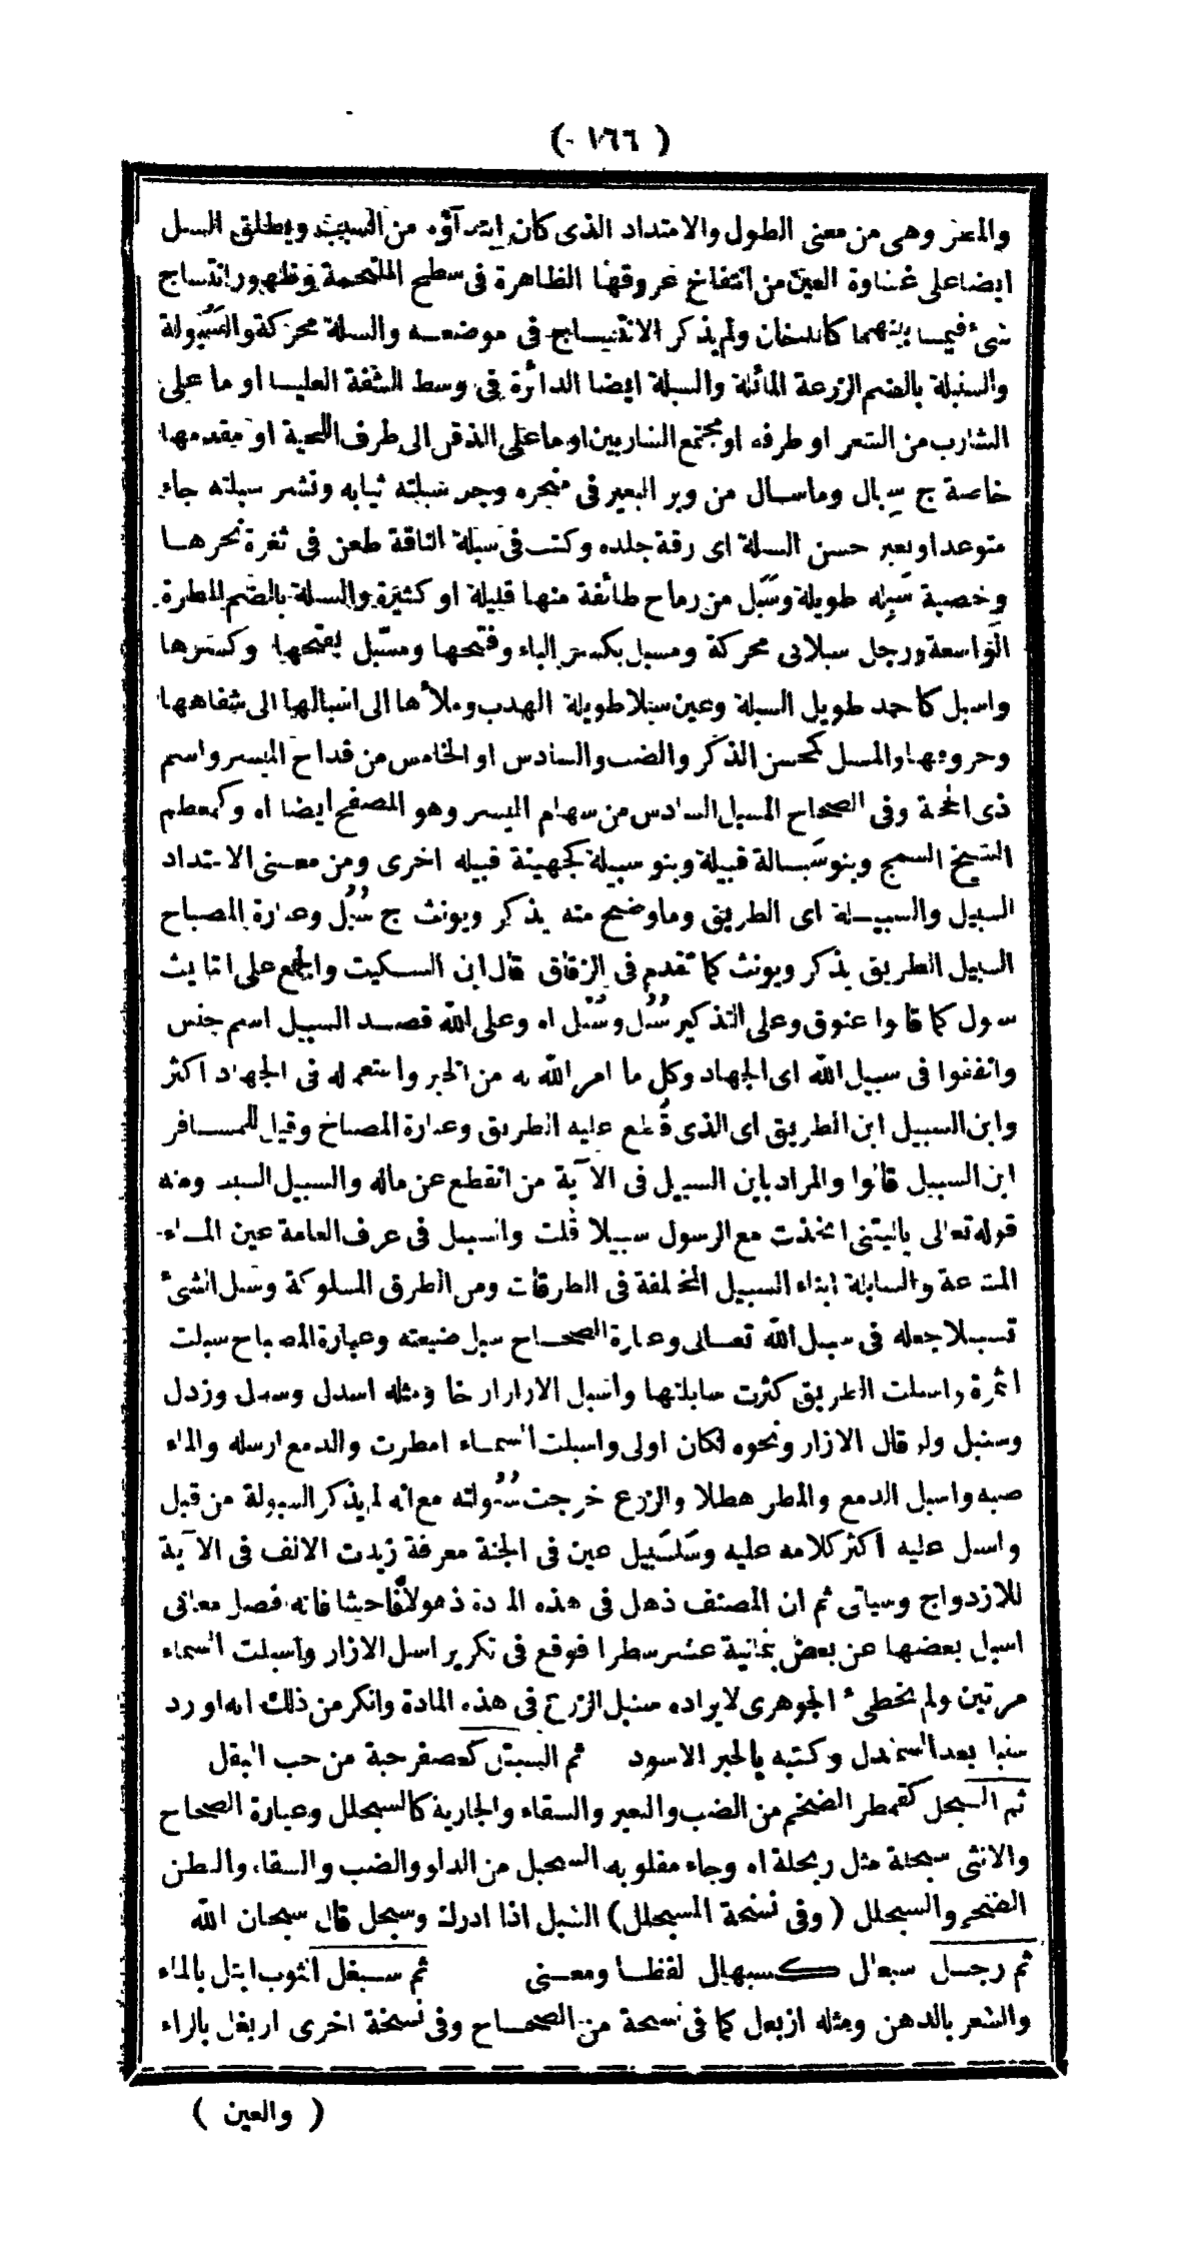 ( ١٦٦ )
والمعنز وهى من معنى الطول والامتداد الذى كان ابتدآؤه من السبب ويطلق السبل
ايضا على غشاوة العين من انتفاخ عروقها الظاهرة فى سطح الملتحمة وظهور انتساج
شىء فيما بينهما كالدخان ولم يذكر الانتساج فى موضعه والسبلة محركة والسُبولة
والسنبلة بالضم الزرعة المائلة والسبلة ايضا الدائرة فى وسط الشفة العليا او ما على
الشارب من الشعر او طرفه او مجتمع الشاربين او ما على الذقن الى طرف اللحية او مقدمها
خاصة ج سِبال وما سال من وبر البعير فى منحره وجر سبلته ثيابه ونشر سبلته جاء
متوعدا وبعير حسن السبلة اى رقة جلده وكتب فى سبلة الناقة طعن فى ثغرة نحرها
وخصية سَبِله طويلة وسَبَل من رماح طائفة منها قليلة او كثيرة والسبلة بالضم المطرة
الواسعة ورجل سبلانى محركة ومسبل بكسر الباء وفتحها ومسبّل بفتحها وكسرها
واسبل كاحمد طويل السبلة وعين سبلا طويلة الهدب وملأها الى اسبالها الى شفاهها
وحروفها والمسبل كمحسن الذكر والضب والسادس او الخامس من قداح الميسر واسم
ذى الحجة وفى الصحاح المسبل السادس من سهام الميسر وهو المصفح ايضا اه وكمعظم
الشيخ السمج وبنو سَبالة قبيلة وبنو سبيلة كجهينة قبيله اخرى ومن معنى الامتداد
السبيل والسبيلة اى الطريق وما وضح منه يذكر ويونث ج سُبُل وعبارة المصباح
السبيل الطريق يذكر ويونث كما تقدم فى الزقاق قال ابن السكيت والجمع على التانيث
سبول كما قالوا عنوق وعلى التذكير سُبُل وسُبْل اه وعلى الله قصد السبيل اسم جنس
وانفقوا فى سبيل الله اى الجهاد وكل ما امر الله به من الخير واستعماله فى الجهاد اكثر
وابن السبيل ابن الطريق اى الذى قُطع عليه الطريق وعبارة المصباح وقيل للمسافر
ابن السبيل قالوا والمراد بابن السبيل فى الآية من انقطع عن ماله والسبيل السبب ومنه
قوله تعالى ياليتنى اتخذت مع الرسول سبيلا قلت والسبيل فى عرف العامة عين الماء
المتدعة والسابلة ابناء السبيل المختلفة فى الطرقات ومن الطرق المسلوكة وسبل الشىء
تسبيلا جعله فى سبيل الله تعالى وعبارة الصحاح سبل ضيعته وعبارة المصباح سبلت
الثمرة واسبلت الطريق كثرت سابلتها واسبل الازار ارخاه ومثله اسدل وسدل وزدل
وسنبل ولو قال الازار ونحوه لكان اولى واسبلت السماء امطرت والدمع ارسله والماء
صبه واسبل الدمع والمطر هطلا والزرع خرجت سُبُولته مع انه لم يذكر السبولة من قبل
واسبل عليه اكثر كلامه عليه وسَلسَبيل عين فى الجنة معرفة زيدت الالف فى الآية
للازدواج وسياتى ثم ان المصنف ذهل فى هذه المادة ذهولا فاحشا فانه فصل معانى
اسبل بعضها عن بعض بثمانية عشر سطرا فوقع فى تكرير اسبل الازار واسبلت السماء
مرتين ولم يخطىء الجوهرى لايراده سنبل الزرع فى هذه المادة وانكر من ذلك انه اورد
سنبل بعد السندل وكتبه بالحبر الاسود ثم السبتل كعصفر حبة من حب البقل
ثم السبحل كقمطر الضخم من الضب والبعير والسقاء والجارية كالسبحلل وعبارة الصحاح
والانثى سبحلة مثل ربحلة اه وجاء مقلوبه السحبل من الدلو والضب والسقاء والبطن
الضخم والسبحلل ( وفى نسخة المسبحلل ) الشبل اذا ادرك وسبحل قال سبحان الله
ثم رجل سبعال كسبهال لفظا ومعنى ثم سبغل الثوب ابتل بالماء
والشعر بالدهن ومثله ازبعل كما فى نسخة من الصحاح وفى نسخة اخرى اربغل بالراء
( والعين )